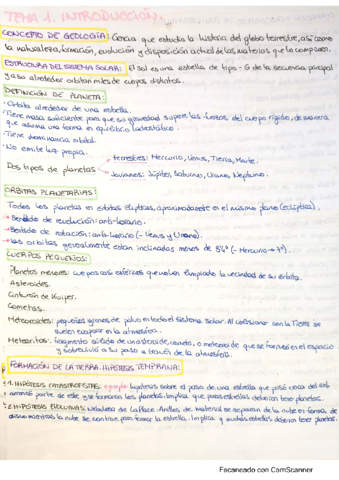 TEMA 1. INTRODUCCIÓN
CONCEPTO DE GEOLOGÍA: Ciencia que estudia la historia del globo terrestre, así como
la naturaleza, formación, evolución y disposición actual de las materias que lo componen.
ESTRUCTURA DEL SISTEMA SOLAR: El sol es una estrella de tipo-G de la secuencia principal
y a su alrededor orbitan miles de cuerpos distintos.
DEFINICIÓN DE PLANETA:
· Orbita alrededor de una estrella.
· Tiene masa suficiente para que su gravedad supere las fuerzas del cuerpo rígido, de manera
que asuma una forma en equilibrio hidrostático.
· Tiene dominancia orbital.
· No emite luz propia.
Dos tipos de planetas
terrestres: Mercurio, Venus, Tierra, Marte.
Jovianos: Júpiter, Saturno, Urano, Neptuno.
ORBITAS PLANETARIAS:
Todos los planetas en orbitas elípticas, aproximadamente en el mismo plano (eclíptica).
- Sentido de revolución: anti-horario.
- Sentido de rotación: anti-horario (- Venus y Urano).
- Las orbitas generalmente están inclinadas menos de (- Mercurio → 7º).
CUERPOS PEQUEÑOS:
Planetas menores: cuerpos casi esféricos que no han limpiado la vecindad de su órbita.
Asteroides.
Cinturón de Kuiper.
Cometas.
Meteoroides: pequeños granos de polvo en todo el sistema solar. Al colisionar con la Tierra se
suelen evaporar en la atmósfera.
Meteoritos: fragmento aislado de un asteroide, cometa, o meteoro que se formó en el espacio
y sobrevivió a su paso a través de la atmósfera.
FORMACIÓN DE LA TIERRA. HIPÓTESIS TEMPRANA:
1. HIPÓTESIS CATASTROFISTAS: ejemplo: hipótesis sobre el paso de una estrella que pasó cerca del sol
arrancó parte de este y se formaron los planetas. Implica que pocas estrellas deberían tener planetas.
2. HIPÓTESIS EVOLUTIVAS: Nebulosa de LaPlace. Anillos de material se separan de la nube en forma de
disco mientras la nube se contrae para formar la estrella. Implica q muchas estrellas deben tener planetas.
Escaneado con CamScanner